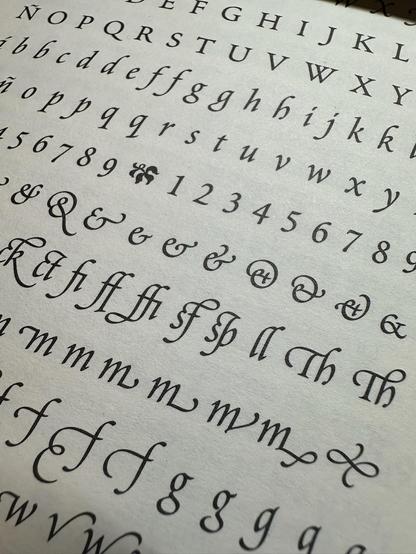 D E F G H I J K L
Ñ O P Q R S T U V W X Y
b b c d d e f f g g h h i j k k
ñ o p p q q r s t u v w x y
4 5 6 7 8 9 1 2 3 4 5 6 7 8 9
& & & & & & & & & &
ck ct fi ff ffi sf sp ll Th Th
m m m m m m m
f f f f g g g g
w v w